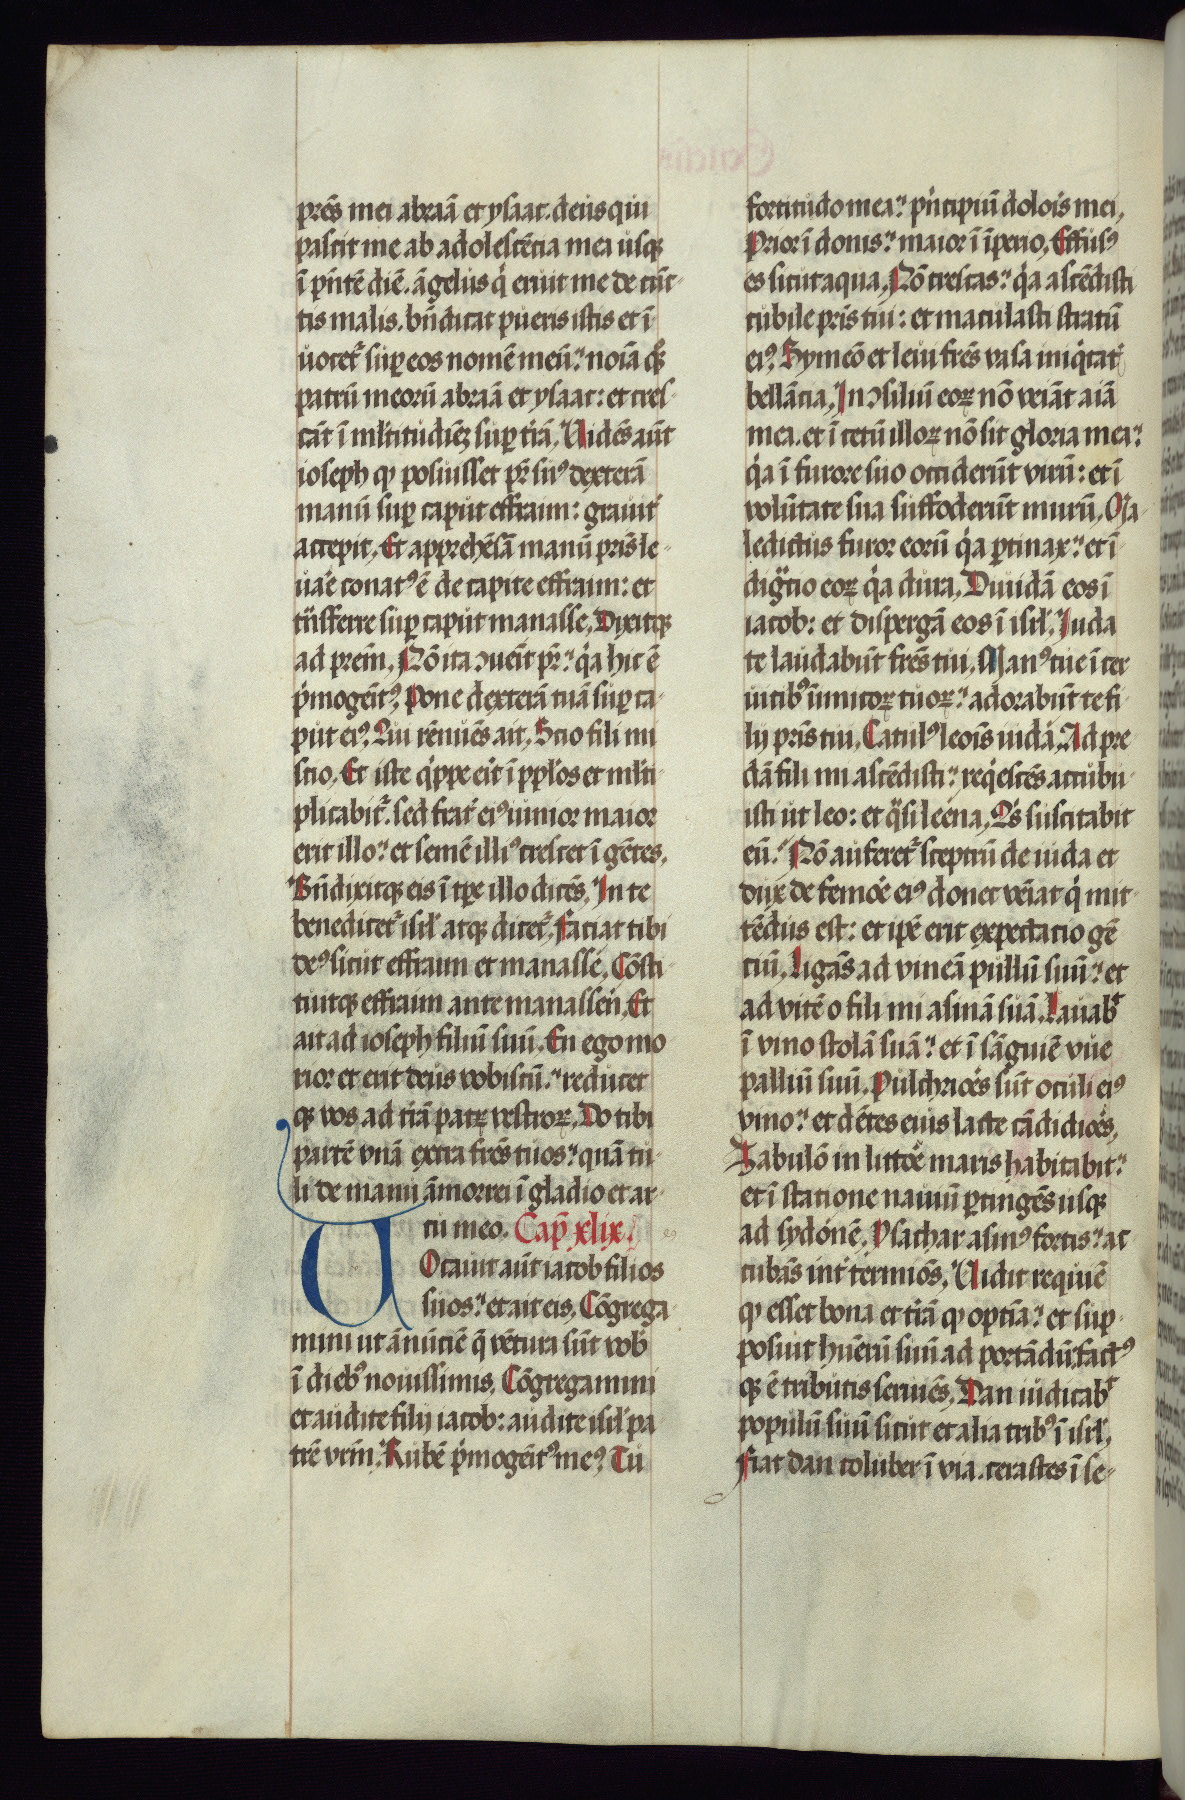 prēs mei abraā et ysaac. deus qui
pascit me ab adolescētia mea usqꝫ
ī pn̄tē diē. āgelus q̇ eruit me de cūc-
tis malis. bn̄dicat pueris istis et ī
uocet᷑ suꝑ eos nomē meū:̓ noīa qꝫ
patrū meorū abraā et ysaac: et cres-
cāt ī ml̄titudiēꝫ suꝑ t̄rā. Uidēs aūt
ioseph ꝙ posuisset pr̄ suꝰ dexterā
manū suꝑ caput effraim: grauit̓
accepit. Et apprehēsā manū pr̄is le-
uar̓e conatꝰ ē de capite effraim: et
tn̄sferre suꝑ caput manasse. Dixitqꝫ
ad prem̄. Nō ita ꝯueīt pr̄:̓ q̇a hic ē
p̓mogeīt̓ꝰ. Pone dexterā tuā suꝑ ca-
put eiꝰ. Qui rēnuēs ait. Scio fili mi
scio. Et iste q̓ppe eīt ī pp̄los et ml̄ti-
plicabit᷑. sed frat̓ eiꝰ iunior maior
erit illo:̓ et semē illiꝰ crescet ī gētes.
Bn̄dixitqꝫ eis ī tꝑe illo dicēs. In te
benedicet᷑ isrl̓ atqꝫ dicet᷑. Faciat tibi
deꝰ sicut effraim et manasse. Cōsti-
tuitqꝫ effraim ante manassen. Et
ait ad ioseph filiū suū. En ego mo
rior et erit deus vobiscū:̓ reducet
qꝫ vos ad t̄rā patꝝ vestroꝝ. Do tibi
partē vnā extra frēs tuos:̓ quā tu-
li de manu āmorrei ī gladio et ar-
cu meo. Cap̄ xlix.
UOcauit aūt iacob filios
suos:̓ et ait eis. Cōgrega-
mini ut ānūciē q̄ vētura sūt vob̄
ī diebꝰ nouissimis. Cōgregamini
et audite filij iacob: audite isrl̓ pa
trē vrm̄. Rubē p̓mogeīt̓ꝰ meꝰ. Tu
fortitudo mea:̓ pn̓cipiū dolois̓ mei.
Prior ī donis:̓ maior ī īperio. Effusꝰ
es sicut aqua. Nō crescas:̓ q̇a ascēdisti
cubile pr̄is tui: et maculasti stratū
eiꝰ. Symeō et leui frēs vasa iniq̓tat̓
bellātia. In ꝯsiliū eoꝝ nō veīat aīa
mea. et ī cetū illoꝝ nō sit gloria mea:̓
q̇a ī furore suo occiderūt virū: et ī
volūtate sua suffoderūt murū. Ma-
ledictus furor eorū q̇a ꝑtinax:̓ et ī-
digᷓtio eoꝝ q̇a dura. Diuidā eos ī
iacob: et dispergā eos ī isrl̓. Iuda
te laudabūt frēs tui. Manꝰ tue ī cer
uicibꝰ inimicoꝝ tuoꝝ:̓ adorabūt te fi-
lij pr̄is tui. Catulꝰ leoīs iuda. Ad pre
dā fili mi ascēdisti:̓ req̓escēs accubu-
isti ut leo: et qᷓsi leena. Q̓s suscitabit
eū:̓ Nō auferet᷑ sceptrū de iuda et
dux de femor̓e eiꝰ donec veīat q̇ mit-
tēdus est: et ipē erit expectatio gē
tiū. Ligās ad vineā pullū suū:̓ et
ad vitē o fili mi asinā suā. Lauabᷣ
ī vino stolā suā:̓ et ī sāguīe vue
palliū suū. Pulchrioēs sūt oculi eiꝰ
vino:̓ et dētes eius lacte cādidioēs.
Zabulō in littor̓e maris habitabit:̓
et ī statione nauiū ꝑtingēs usqꝫ
ad sydonē. Ysachar asinꝰ fortis:̓ ac
cubās int̓ termiōs. Uidit requiē
ꝙ esset bona et t̄rā ꝙ optīa:̓ et sup-
posuit hūerū suū ad portādū. factꝰ
qꝫ ē tributis seruiēs. Dan iudicabᷣ
populū suū sicut et alia tribꝰ ī isrl̓.
Fiat dan coluber ī via. cerastes ī se-